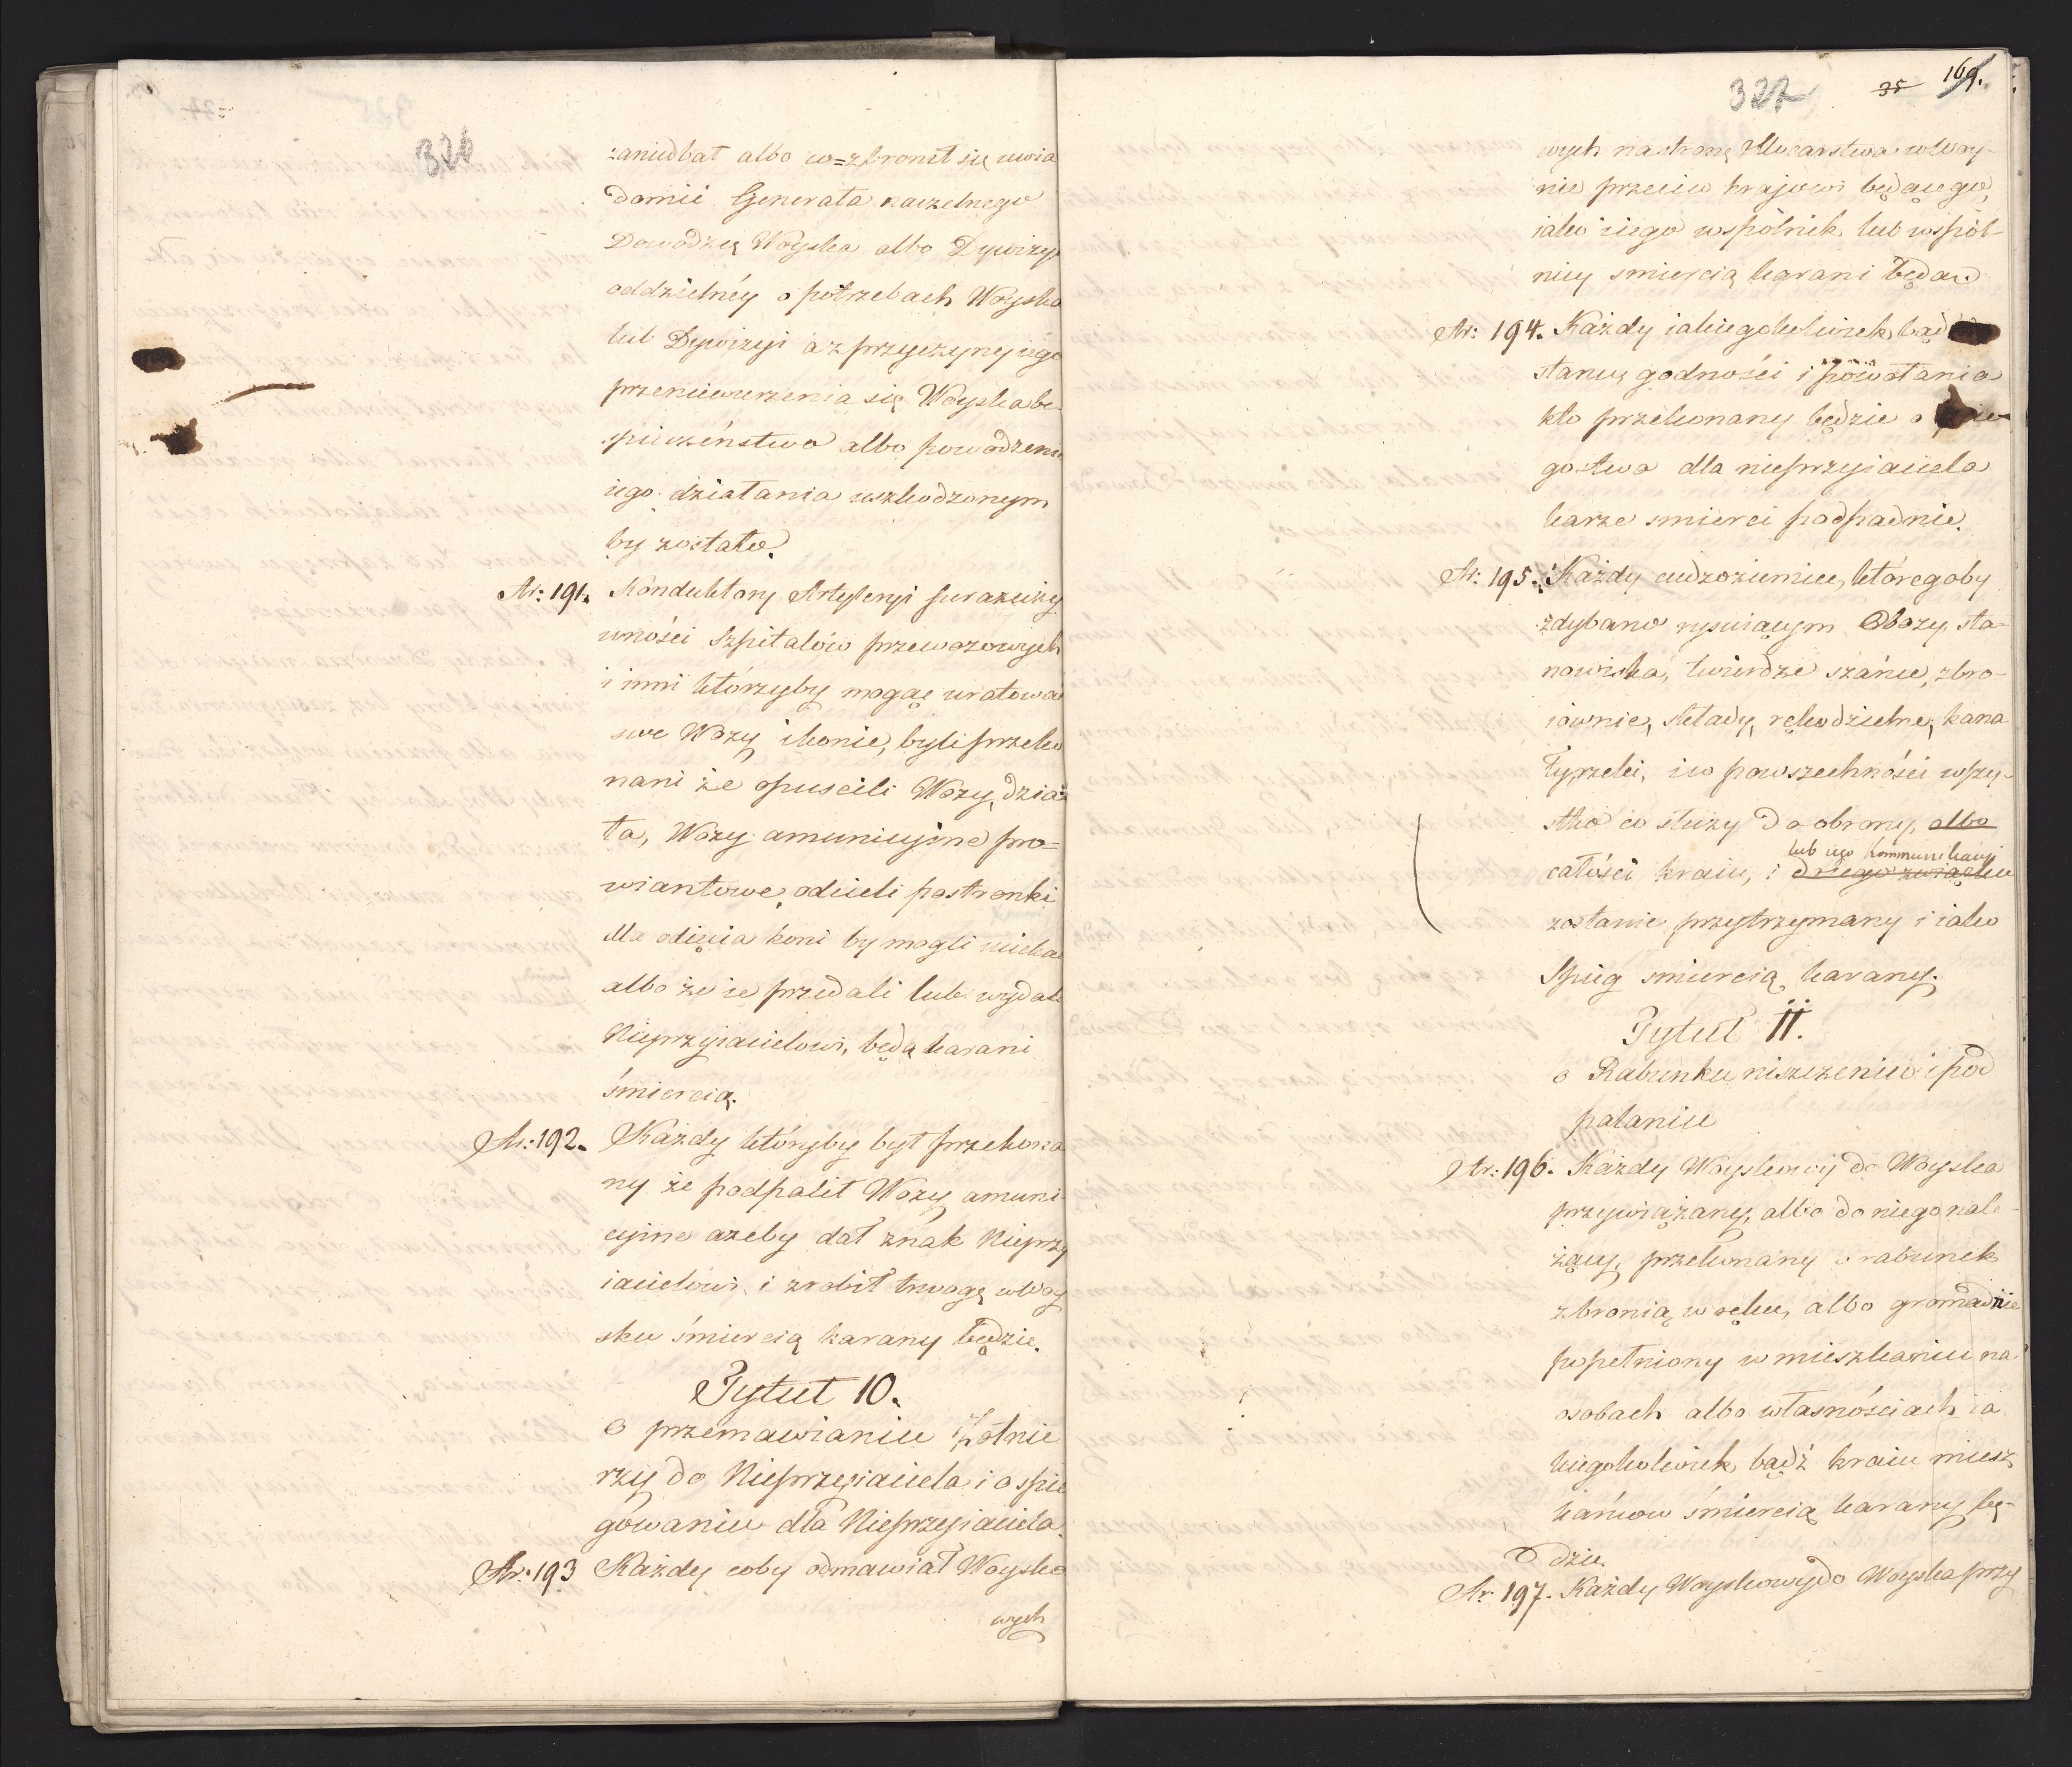 326
zaniedbał albo w=zbronił się uwia
domić Generała naczelnego
Dowódzcę Woyska albo Dywizyi
oddzielnéy o potrzebach Woyska
lub Dywizyi a z przyczyny iego
przeniewierzenia się Woyska be-
spieczeństwo albo powodzenie
iego działania uszkodzonym
by zostało.
Ar: 191. Konduktory Artyleryi furaże ży
wności Szpitalów przewozowych
i inni którzyby mogąc uratować
swe Wozy i konie, byli przeko
nani że opuścili Wozy, dzia
ła, Wozy amunicyjne pro=
wiantowe, odcieli postronki
dla odięcia koni by mogli uiechać
albo że ie przedali lub wydali
Nieprzyiacielowi, będą karani
śmiercią.
Ar: 192. Każdy któryby był przekona
ny że podpalił Wozy amuni
cyine ażeby dał znak Nieprzy
iacielowi i zrobił trwogę w Woy
sku śmiercią karany będzie.
Tytuł 10.
O przemawianiu Żołnie
rzy do Nieprzyiaciela i o szpie
gowaniu dla Nieprzyiaciela.
Ar: 193 Każdy coby odmawiał Woysko
wych
327 35 169.
wych na stronę Mocarstwa w Woy-
nie przeciw krajowi będącego,
iako i iego wspólnik lub wspól-
nicy smiercią karani będą
Ar: 194. Każdy iakiegokolwiek bądź
stanu, godności i powołania
kto przekonany będzie o
gostwo dla nieprzyiaciela
karze smierci podpadnie.
Ar: 195. Każdy cudzoziemiec, któregoby
zdybano rysuiącym Obozy, sta-
nowiska, twierdze szańce, zbro-
iownie, składy, rękodzielne, kana
ły, rzeki, i w powszechności wszy-
stko co służy do obrony, albo
lub iego kommunikacyi
całości kraiu, i driego związku
zostanie przytrzymany i iako
Szpieg smiercią karany.
Tytuł 11.
o Rabunku niszczeniu i pod
palaniu
Ar: 196. Każdy Woyskowy do Woyska
przywiązany, albo do niego nale-
żący, przekonany o rabunek
z bronią w ręku, albo gromadnie
popełniony w mieszkaniu na
osobach albo własnościach ia
kiegokolwiek bądź kraiu miesz
kańcow śmiercią karany bę-
dzie.
Ar 197. Każdy Woyskowy do Woyska przy